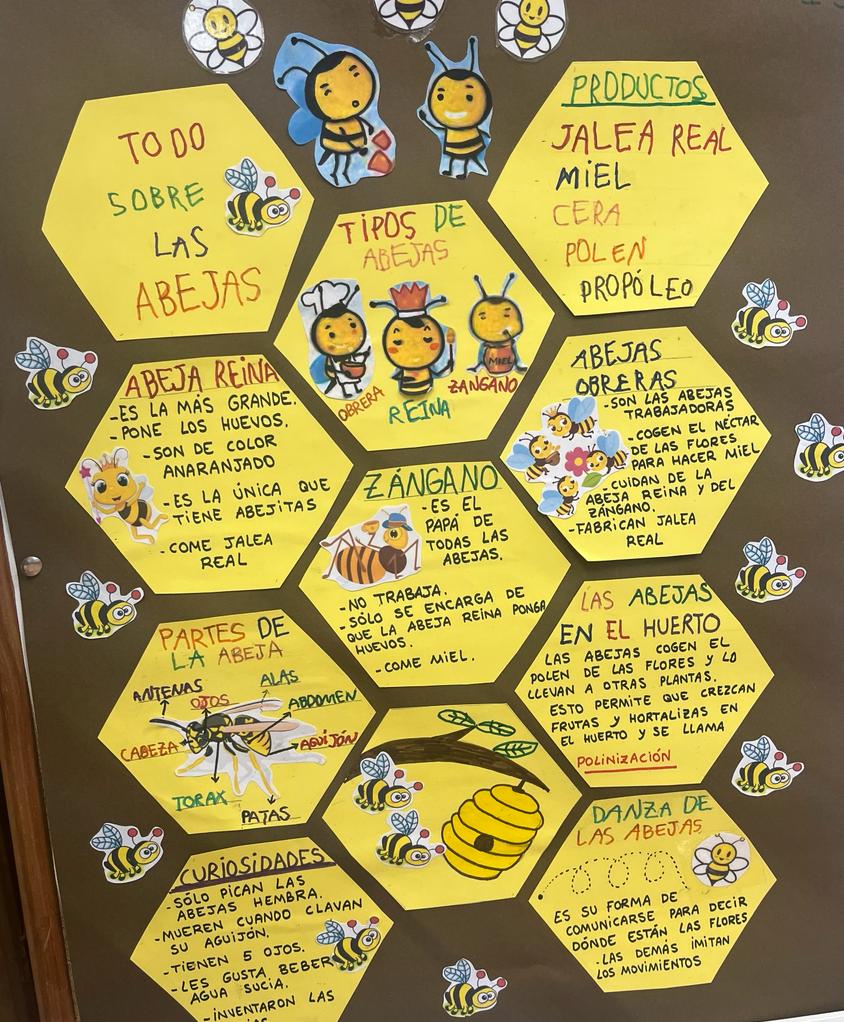 TODO
SOBRE
LAS
ABEJAS
PRODUCTOS
JALEA REAL
MIEL
CERA
POLEN
PROPÓLEO
TIPOS DE
ABEJAS
MIEL
OBRERA
REINA
ZANGANO
ABEJA REINA
-ES LA MÁS GRANDE.
-PONE LOS HUEVOS.
-SON DE COLOR
ANARANJADO
-ES LA ÚNICA QUE
TIENE ABEJITAS
-COME JALEA
REAL
ABEJAS
OBRERAS
-SON LAS ABEJAS
TRABAJADORAS
-COGEN EL NÉCTAR
DE LAS FLORES
PARA HACER MIEL
-CUIDAN DE LA
ABEJA REINA Y DEL
ZÁNGANO.
-FABRICAN JALEA
REAL
ZÁNGANO
-ES EL
PAPÁ DE
TODAS LAS
ABEJAS.
-NO TRABAJA.
-SÓLO SE ENCARGA DE
QUE LA ABEJA REINA PONGA
HUEVOS.
-COME MIEL.
PARTES DE
LA ABEJA
ANTENAS
OJOS
ALAS
ABDOMEN
CABEZA
AGUIJÓN
TORAX
PATAS
LAS ABEJAS
EN EL HUERTO
LAS ABEJAS COGEN EL
POLEN DE LAS FLORES Y LO
LLEVAN A OTRAS PLANTAS.
ESTO PERMITE QUE CREZCAN
FRUTAS Y HORTALIZAS EN
EL HUERTO Y SE LLAMA
POLINIZACIÓN
DANZA DE
LAS ABEJAS
ES SU FORMA DE
COMUNICARSE PARA DECIR
DÓNDE ESTÁN LAS FLORES
.LAS DEMÁS IMITAN
LOS MOVIMIENTOS
CURIOSIDADES
-SÓLO PICAN LAS
ABEJAS HEMBRA.
-MUEREN CUANDO CLAVAN
SU AGUIJÓN.
-TIENEN 5 OJOS.
-LES GUSTA BEBER
AGUA SUCIA.
-INVENTARON LAS